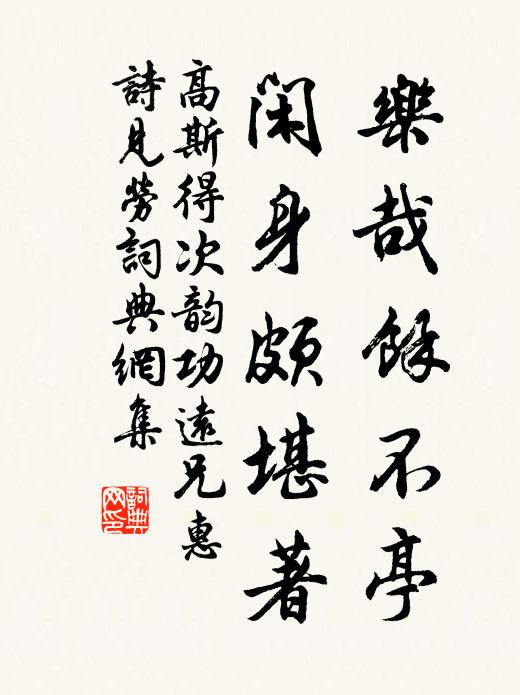 樂哉餘不亭
閑身頗堪著
高斯得次韵功遠兄惠
詩見勞詞典網集
詞典網印